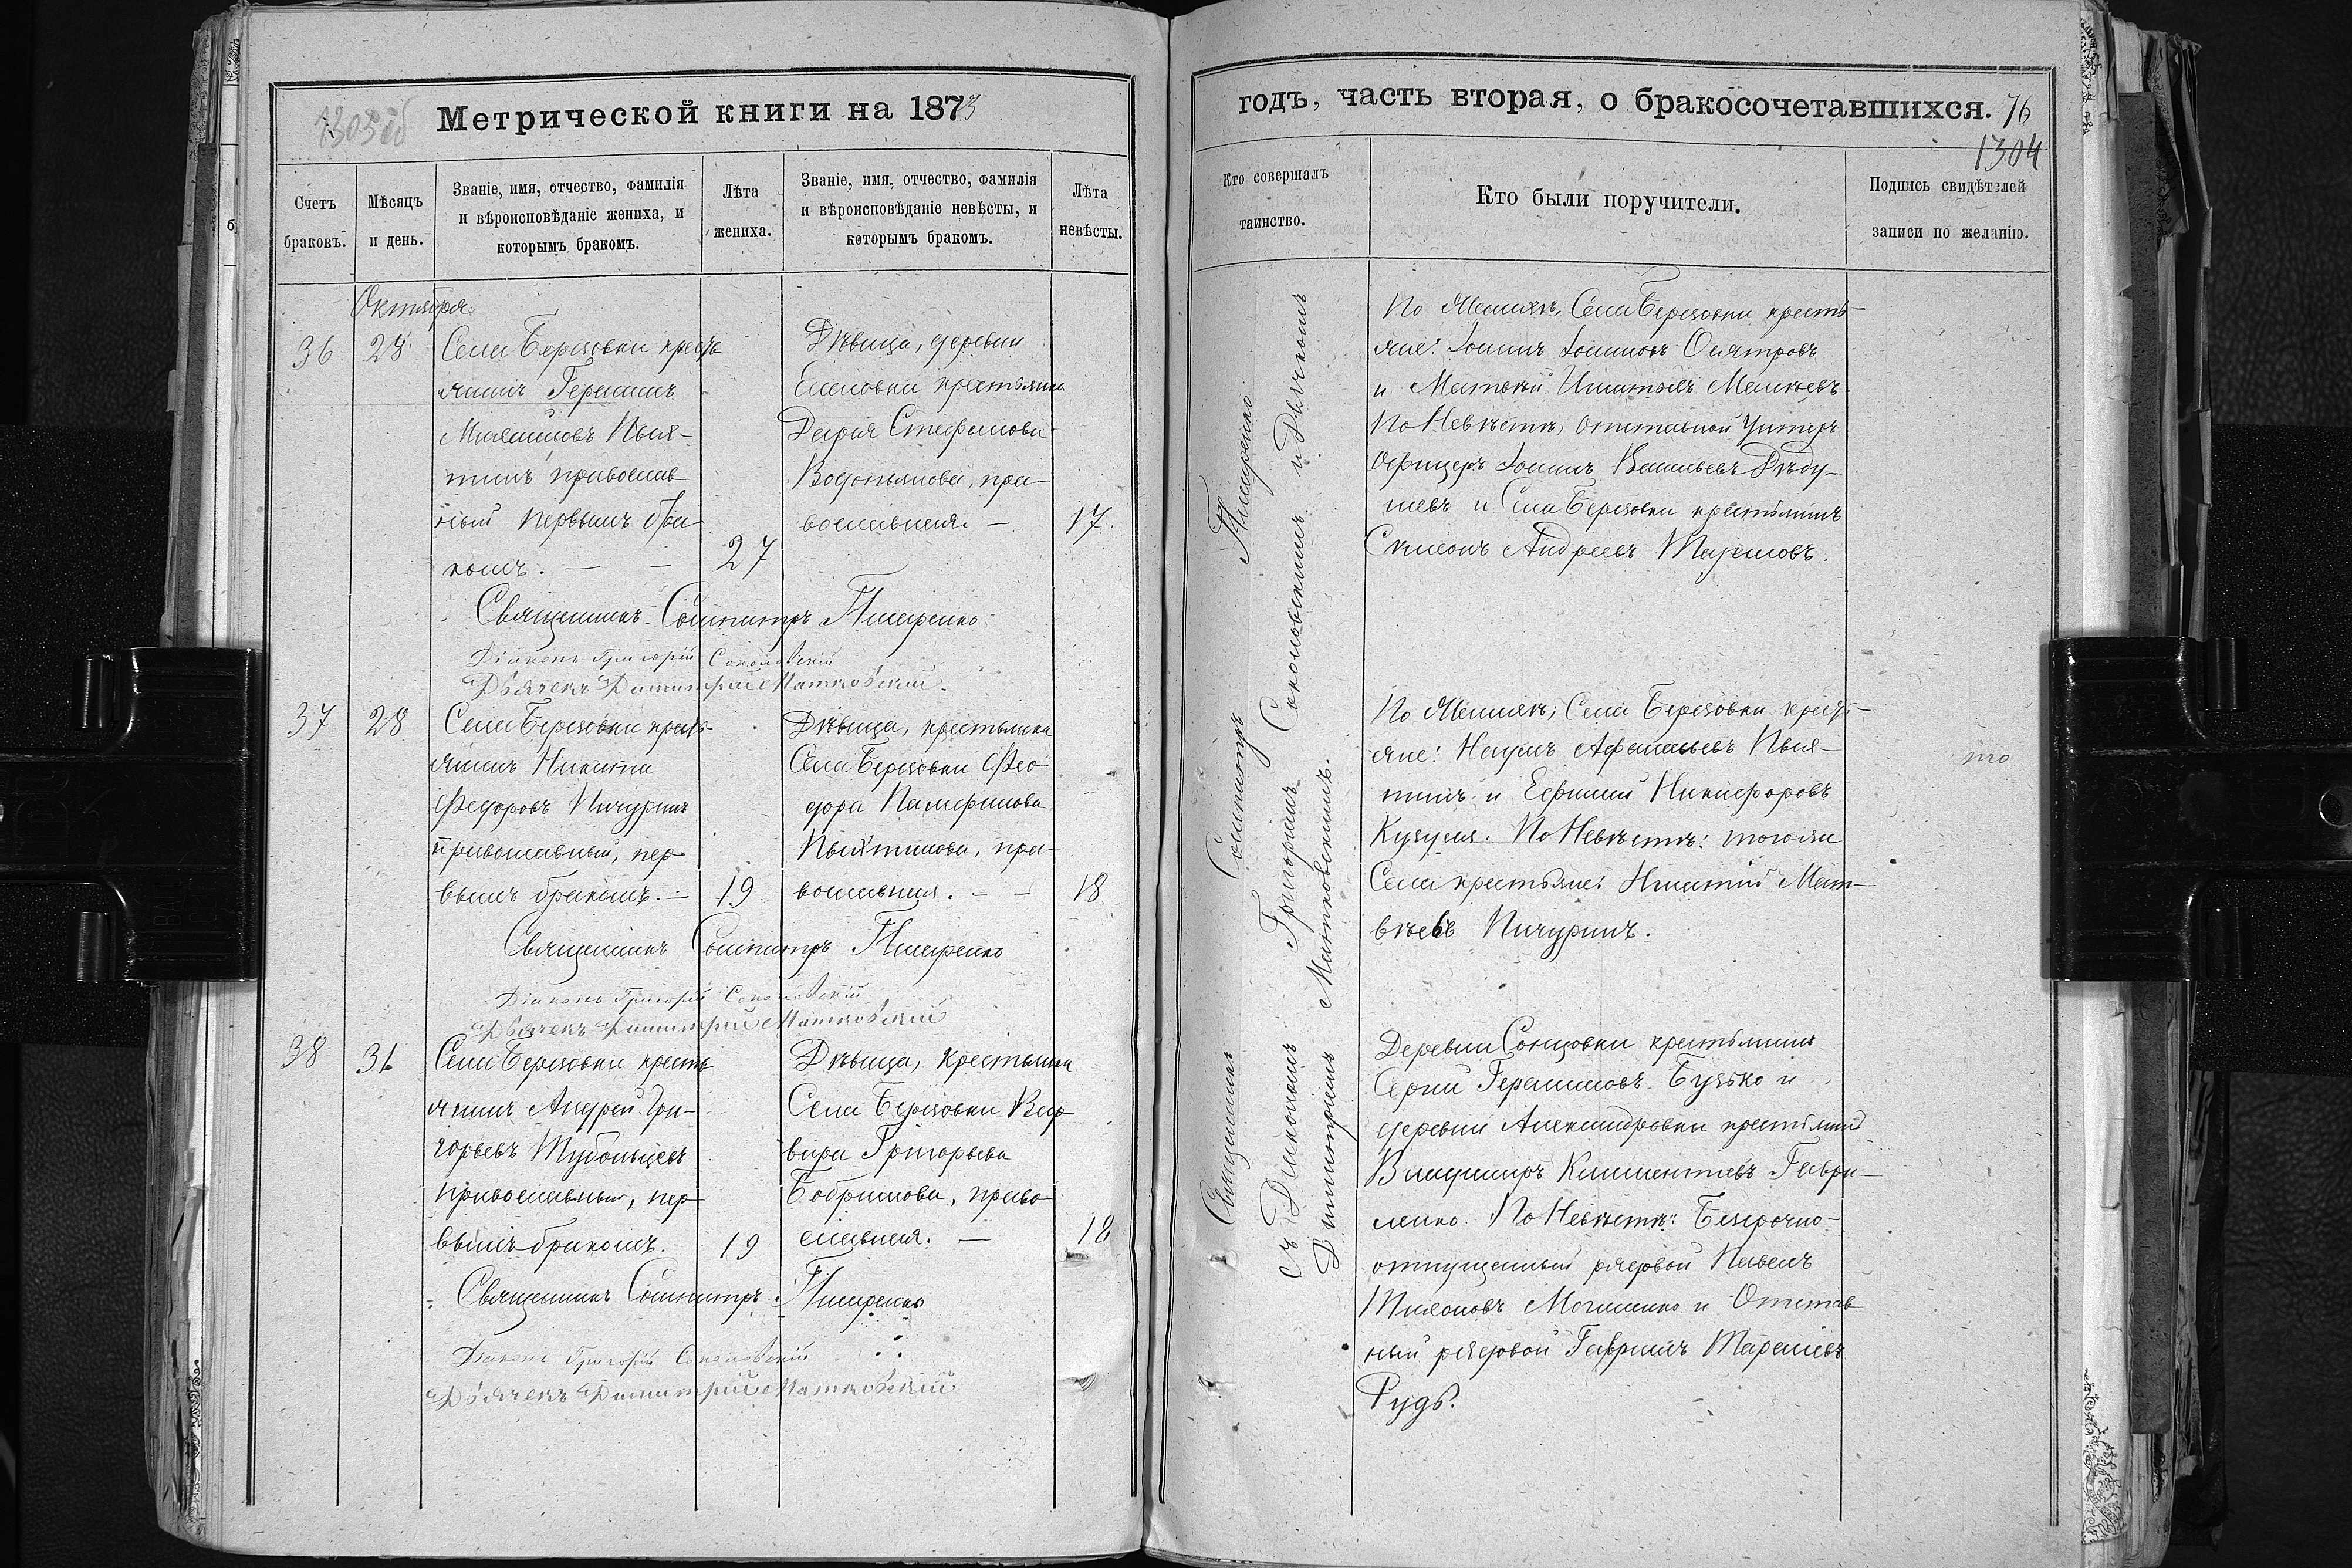 1303об
Метрической книги на 1873
Счетъ браковъ.
Мѣсяцъ и день.
Званіе, имя, отчество, фамилія
и вѣроисповѣданіе жениха, и
которымъ бракомъ.
Лѣта жениха.
Званіе, имя, отчество, фамилія
и вѣроисповѣданіе невѣсты, и
которымъ бракомъ.
Лѣта невѣсты.
Октября
36
28
Села Березовки кресть
янинъ Герасимъ
Михайловъ Пвия-
тинъ православ
ный первымъ бра
комъ. — —
27
Дѣвица, деревни
Еленовки крестьянка
Дарья Стефанова
Водопьянова, пра-
вославная. —
17.
Священникъ Сосипатръ Пширенко
Діаконъ Григорій Соколовскій
Дьячекъ Димитрій Матковскій.
37
28
Села Березовки кресть-
янинъ Никита
Федоровъ Пичуринъ
православный, пер
вымъ бракомъ. —
19
Дѣвица, крестьянка
Села Березовки Фео
дора Памфилова
Пвиятинова, пра-
вославная. — —
18
Священникъ Сосипатръ Пширенко
Діаконъ Григорій Соколовскій
Дьячекъ Димитрій Матковскій
38
31
Села Березовки кресть
янинъ Андрей Гри-
горьевъ Тубольцевъ
православный, пер
вымъ бракомъ.
19
Дѣвица, крестьянка
Села Березовки Вар
вара Григорьева
Бобринова, право
славная. —
18
Священникъ Сосипатръ Пширенко
Діаконъ Григорій Соколовскій
Дьячекъ Димитрій Матковскій
годъ, часть вторая, о бракосочетавшихся. 76
1304
Кто совершалъ таинство.
Кто были поручители.
Подпись свидѣтелей
записи по желанію.
Священникъ Сосипатръ Пширенко
съ Діакономъ Григоріемъ Соколовскимъ и Дьячкомъ
Димитріемъ Матковскимъ.
По Женихѣ, Села Березовки кресть-
яне: Іоаннъ Іоанновъ
и Матвѣй Игнатіевъ
По Невѣстѣ, отставной Унтеръ
Офицеръ Іоаннъ Васильевъ Дѣду-
шевъ и Села Березовки крестьянинъ
Симеонъ Андреевъ
По Женихѣ, Села Березовки кресть-
яне: Наумъ Афанасьевъ Пвия-
тинъ и Ефимій Никифоровъ
Кузуля. По Невѣстѣ: того же
Села крестьяне: Игнатій Мат-
вѣевъ Пичуринъ.
Деревни Сонцовки крестьянинъ
Сергій Герасимовъ Бузько и
деревни Александровки крестьянин
Владиміръ Климентіевъ Гаври-
ленко. По Невѣстѣ: Безсрочно-
отпущенный рядовой Павелъ
Тихоновъ Могиленко и Отстав
ный рядовой Гавріилъ Тарасіевъ
Рудь.
то